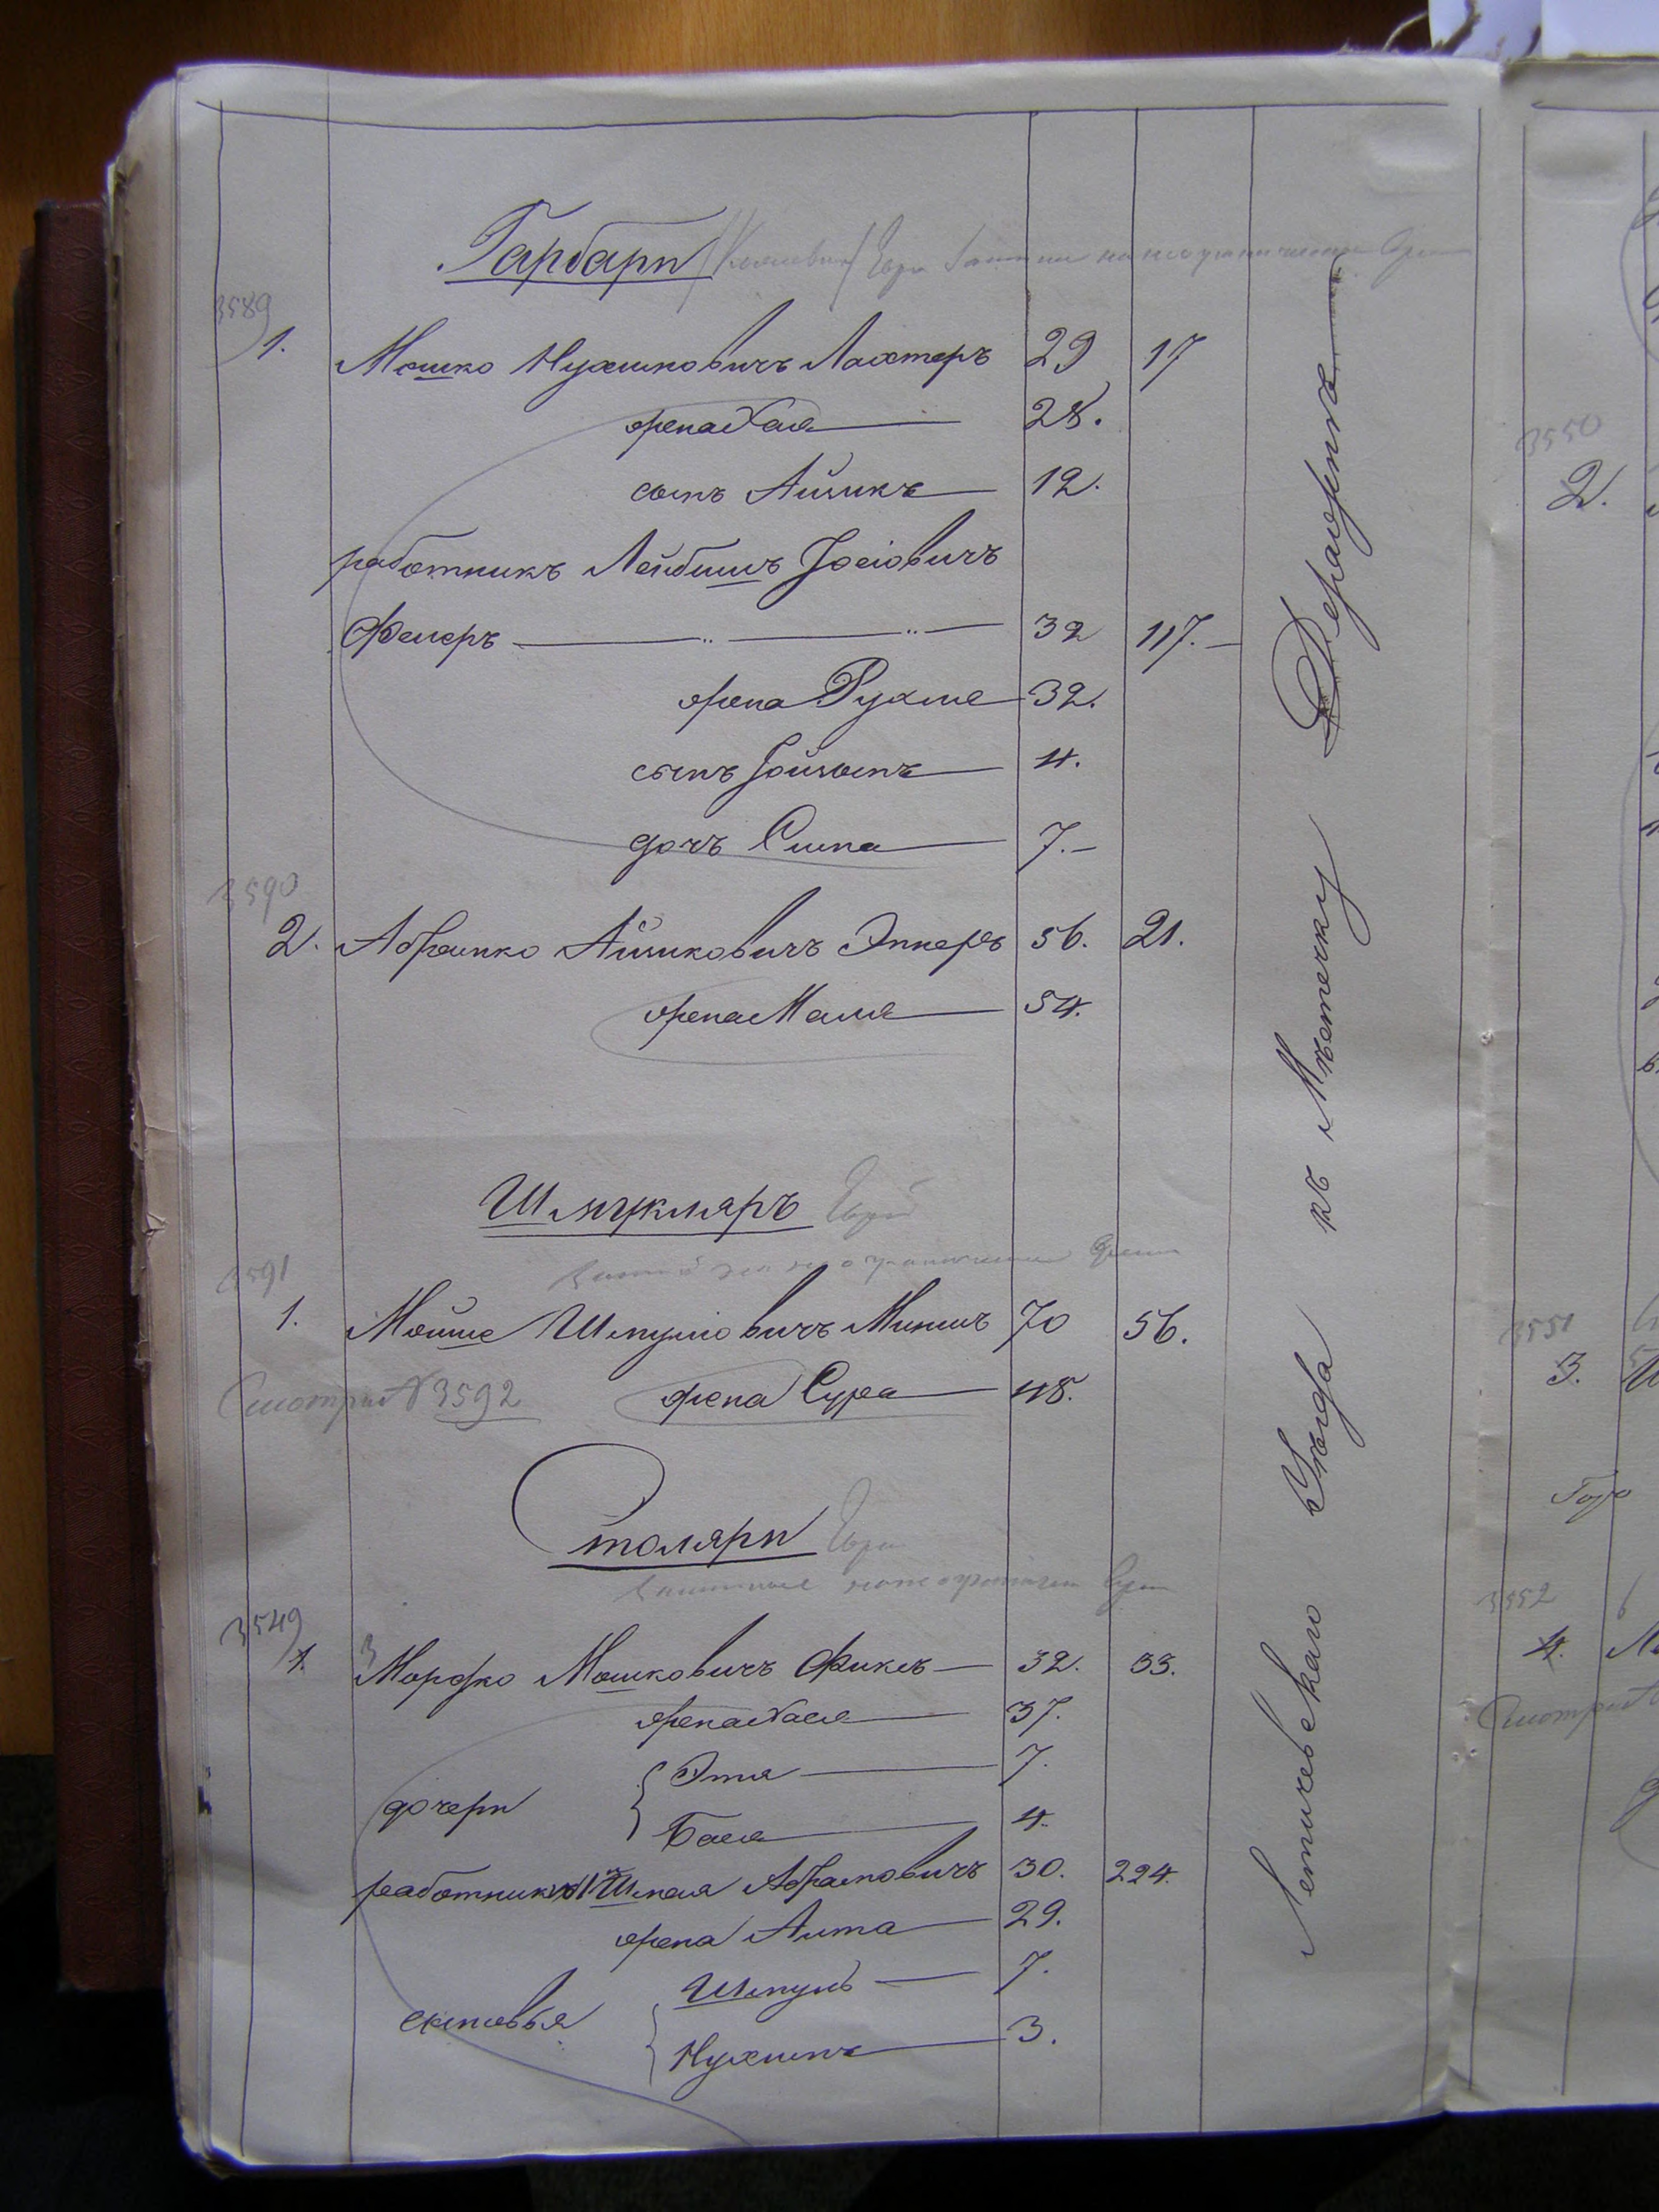 Гарбари
3589
1. Мошко Нухимовичъ Лахтеръ 29 17
жена Хая 28.
сынъ Айзикъ 12.
работникъ Лейбишъ Іосіовичъ
Фелеръ 32 117.
жена Рухля 32.
сынъ Іойсынъ 4.
дочъ Сипа 7.
3590
2. Абрамко Айзиковичъ Эпперъ 56. 21.
жена Маля 54.
Шмукляръ
3591
1. Мойше Шмуліовичъ Минисъ 70 56.
Смотри № 3592 жена Сура 48.
Столяри
3549
1. Мордко Мошковичъ Фиксъ 32. 33.
жена Хася 37.
дочери Этя 7.
Бася 4.
работникъ Шмая Абрамовичъ 30. 224.
жена Алта 29.
сыновья Шмуль 7.
Нухимъ 3.
Летичевскаго Уѣзда къ Мѣстечку Деражнѣ
3550
2.
3551
3.
3552
4.
Смотри